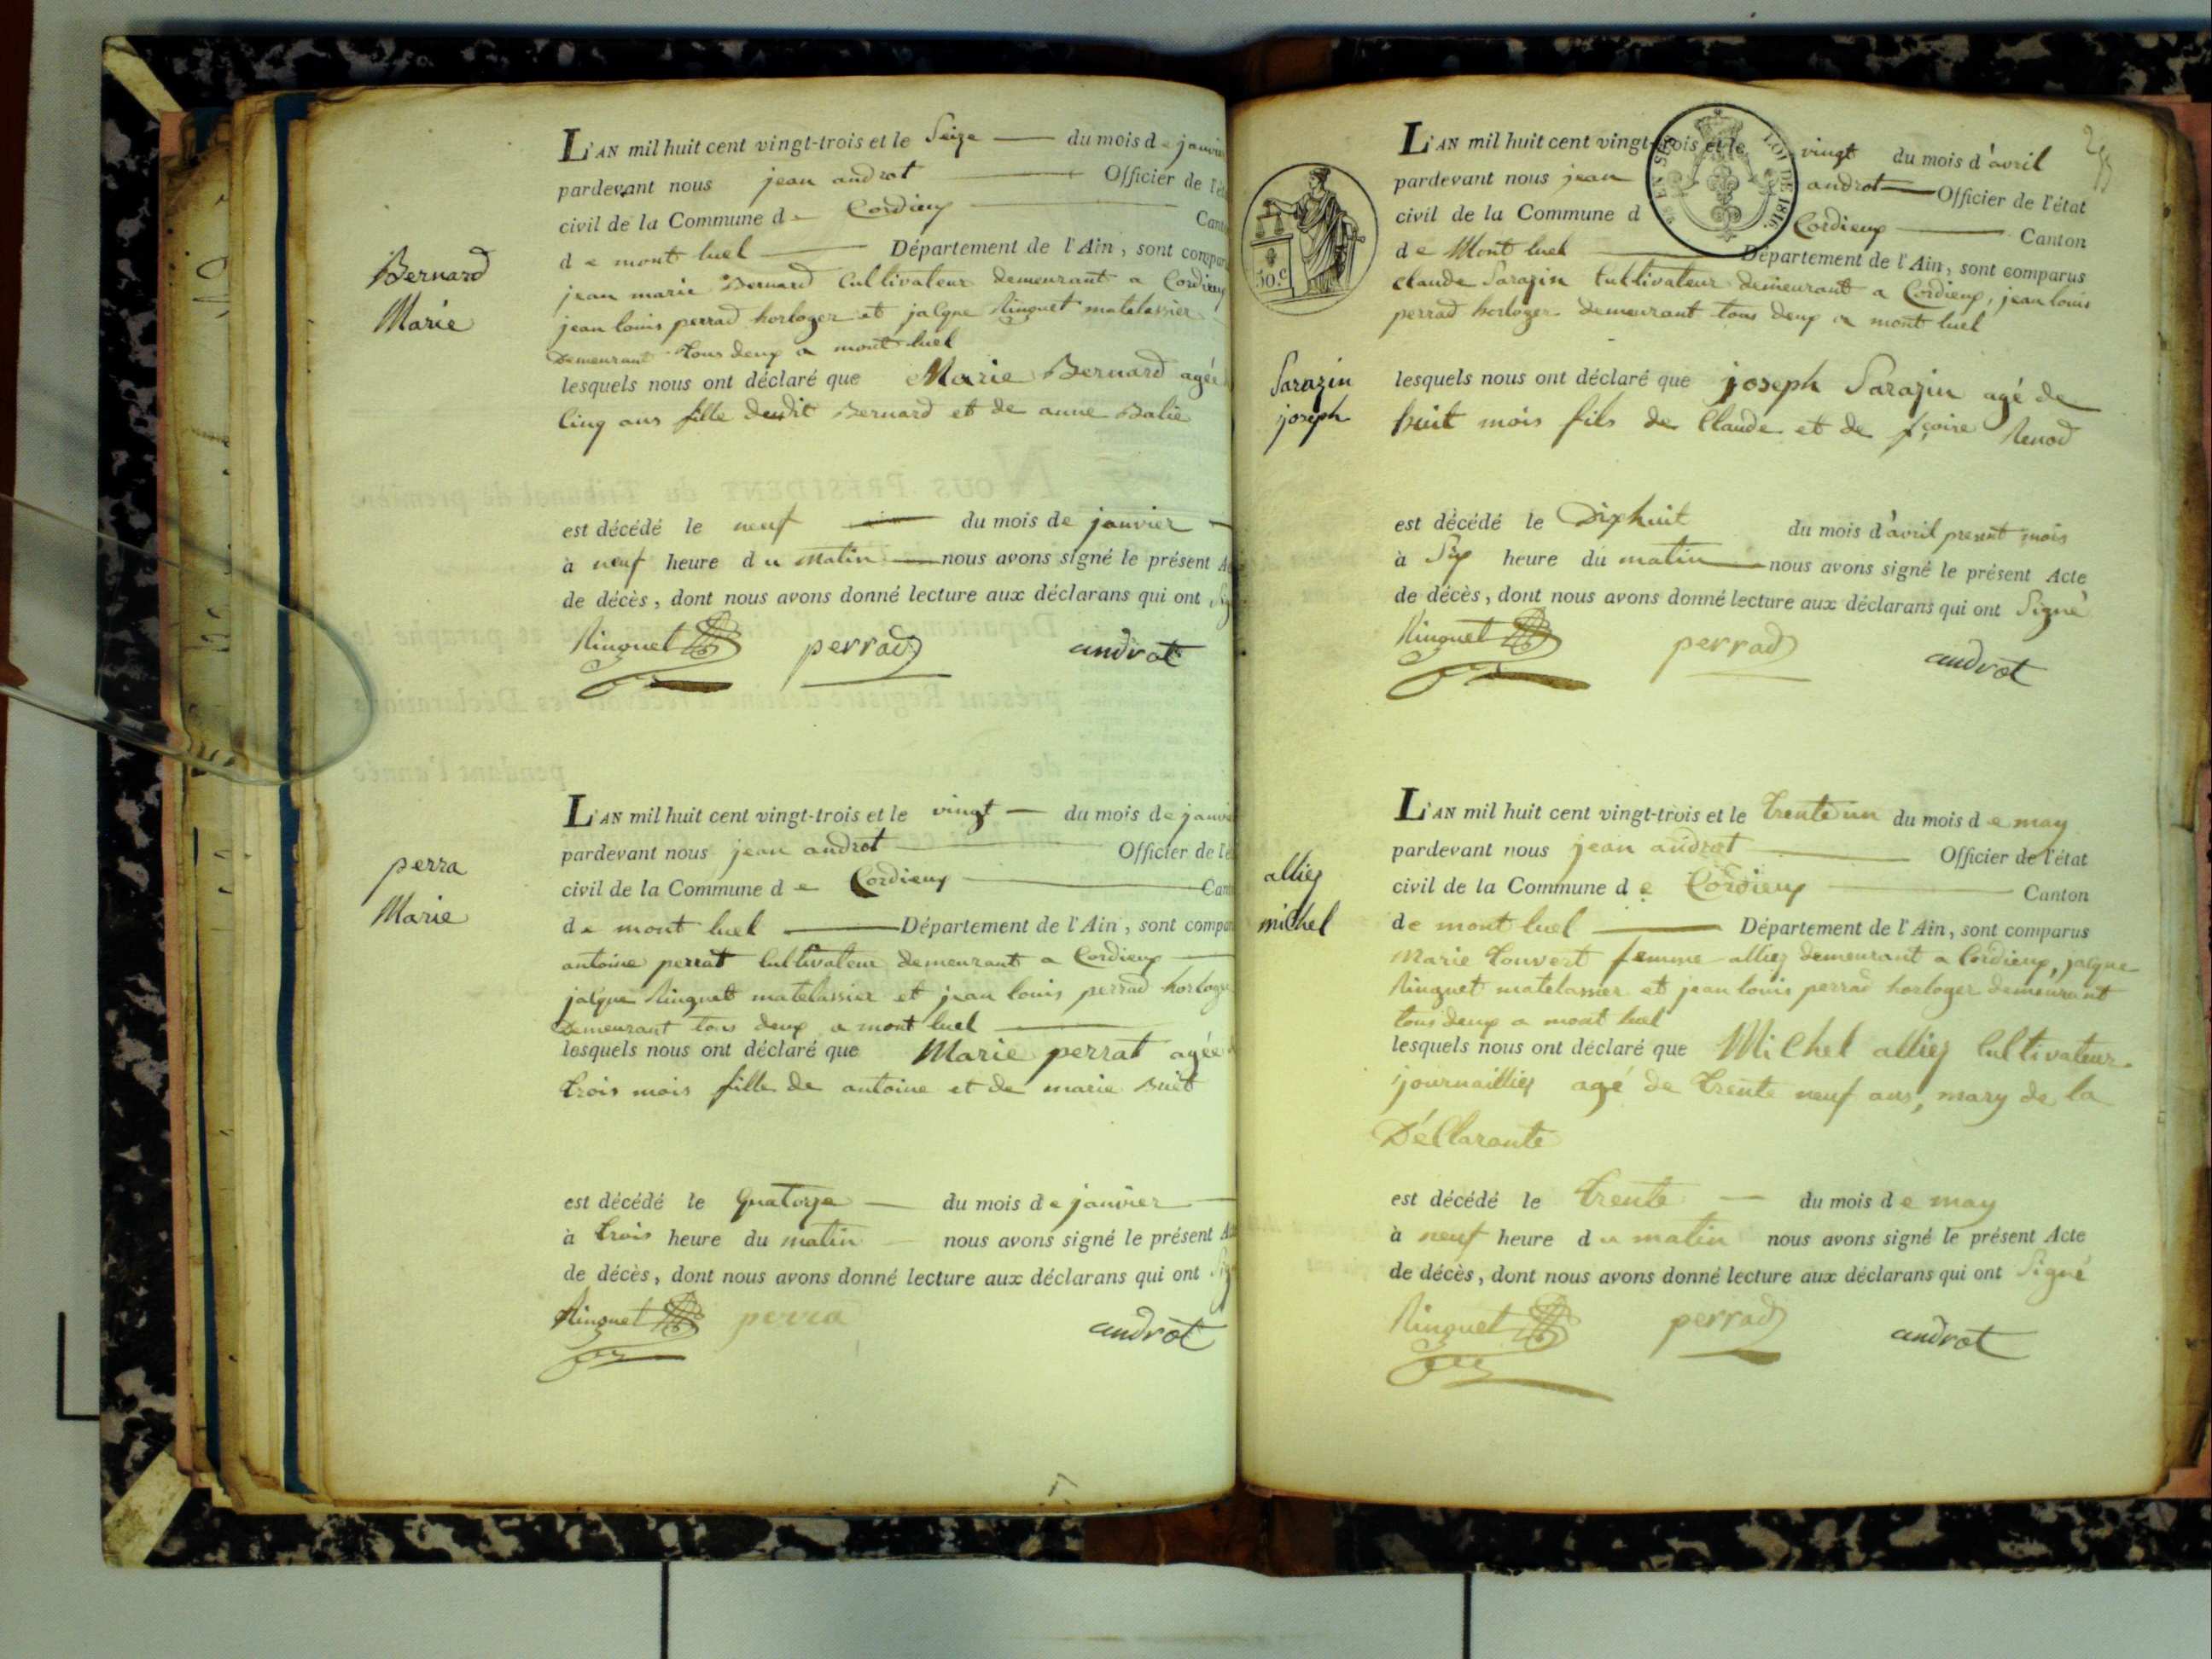 Bernard
Marie
L'AN mil huit cent vingt-trois et le Seize du mois de janvier
pardevant nous jean androt Officier de l'é
civil de la Commune de Cordieux Cant
de mont luel Département de l'Ain, sont compar
jean marie Bernard Cultivateur demeurant a Cordieux
jean louis perrad horloger et jacque Ringuet matelassier
Demeurant tous deux a mont luel
lesquels nous ont déclaré que Marie Bernard agée
Cinq ans fille dudit Bernard et de anne Balie
est décédé le neuf du mois de janvier
à neuf heure du matin nous avons signé le présent A
de décès, dont nous avons donné lecture aux déclarans qui ont Sig
Ringuet perrad androt
perra
Marie
L'AN mil huit cent vingt-trois et le vingt du mois de janvi
pardevant nous jean androt Officier de l'é
civil de la Commune de Cordieux Can
de mont luel Département de l'Ain, sont compar
antoine perrat Cultivateur demeurant a Cordieux
jacque Ringuet matelassier et jean louis perrad horloge
Demeurant tous deux a mont luel
lesquels nous ont déclaré que Marie perrat agée
trois mois fille de antoine et de marie Buet
est décédé le Quatorze du mois de janvier
à trois heure du matin nous avons signé le présent A
de décès, dont nous avons donné lecture aux déclarans qui ont Sig
Ringuet perra androt
L'AN mil huit cent vingt-trois et le vingt du mois d'avril
pardevant nous jean androt Officier de l'état
civil de la Commune d Cordieux Canton
de Mont luel Département de l'Ain, sont comparus
claude Sarazin Cultivateur demeurant a Cordieux, jean louis
perrad horloger demeurant tous deux a mont luel
LOI DE 1816
50.c
Sarazin
joseph
lesquels nous ont déclaré que joseph Sarazin agé de
huit mois fils de Claude et de fçoise Renod
est décédé le Dixhuit du mois d'avril present mois
à Six heure du matin nous avons signé le présent Acte
de décès, dont nous avons donné lecture aux déclarans qui ont Signé
Ringuet perrad androt
alliez
michel
L'AN mil huit cent vingt-trois et le trente un du mois de may
pardevant nous jean androt Officier de l'état
civil de la Commune de Cordieux Canton
de mont luel Département de l'Ain, sont comparus
Marie Couvert femme alliez demeurant a Cordieux, jacque
Ringuet matelassier et jean louis perrad horloger demeurant
tous deux a mont luel
lesquels nous ont déclaré que Michel alliez Cultivateur
journaillier agé de trente neuf ans, mary de la
Déclarante
est décédé le trente du mois de may
à neuf heure du matin nous avons signé le présent Acte
de décès, dont nous avons donné lecture aux déclarans qui ont Signé
Ringuet perrad androt